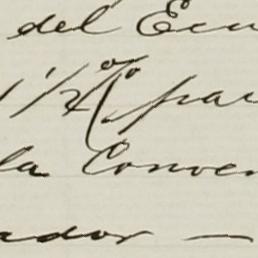 del Ecu
1 1/2 % par
la Conven
ador —